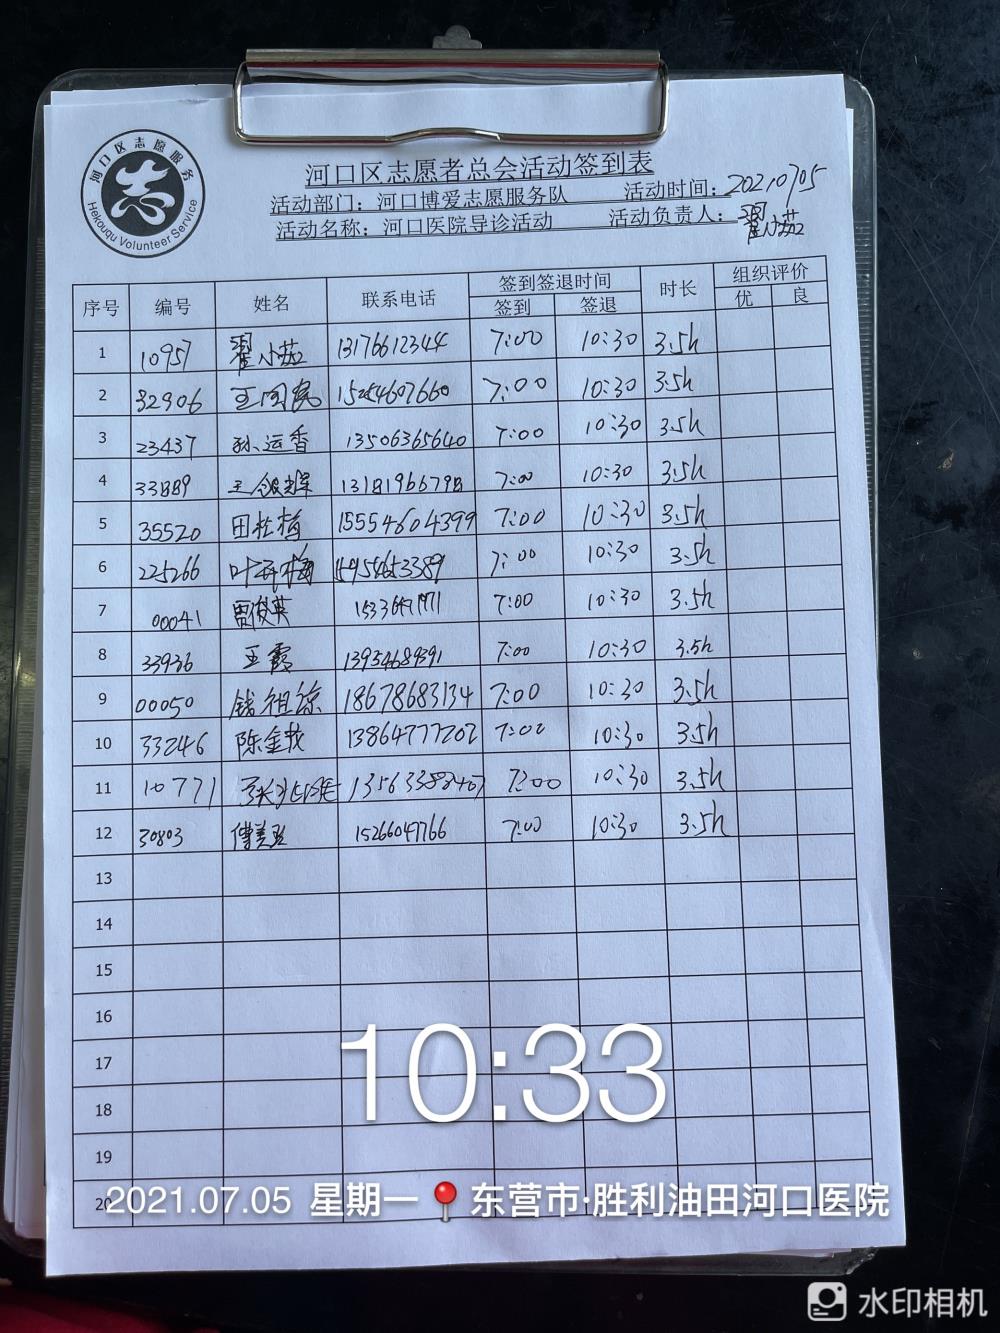 河口区志愿服务
Hekouqu Volunteer Service
河口区志愿者总会活动签到表
活动部门：河口博爱志愿服务队 活动时间：20210705
活动名称：河口医院导诊活动 活动负责人：翟小茹
序号 编号 姓名 联系电话 签到签退时间 时长 组织评价
签到 签退 优 良
1 10957 翟小茹 13176612344 7:00 10:30 3.5h
2 32906 王国民 15254607660 7:00 10:30 3.5h
3 23437 孙运香 13506365640 7:00 10:30 3.5h
4 33889 7:00 10:30 3.5h
5 35520 田桂梅 15554604399 7:00 10:30 3.5h
6 225266 7:00 10:30 3.5h
7 00041 贾俊英 7:00 10:30 3.5h
8 33936 王霞 7:00 10:30 3.5h
9 00050 钱祖琼 18678683134 7:00 10:30 3.5h
10 33246 陈金枝 13864777202 7:00 10:30 3.5h
11 10771 7:00 10:30 3.5h
12 30803 15266047766 7:00 10:30 3.5h
13
14
15
16
17
18
19
20
10:33
2021.07.05 星期一 东营市·胜利油田河口医院
水印相机